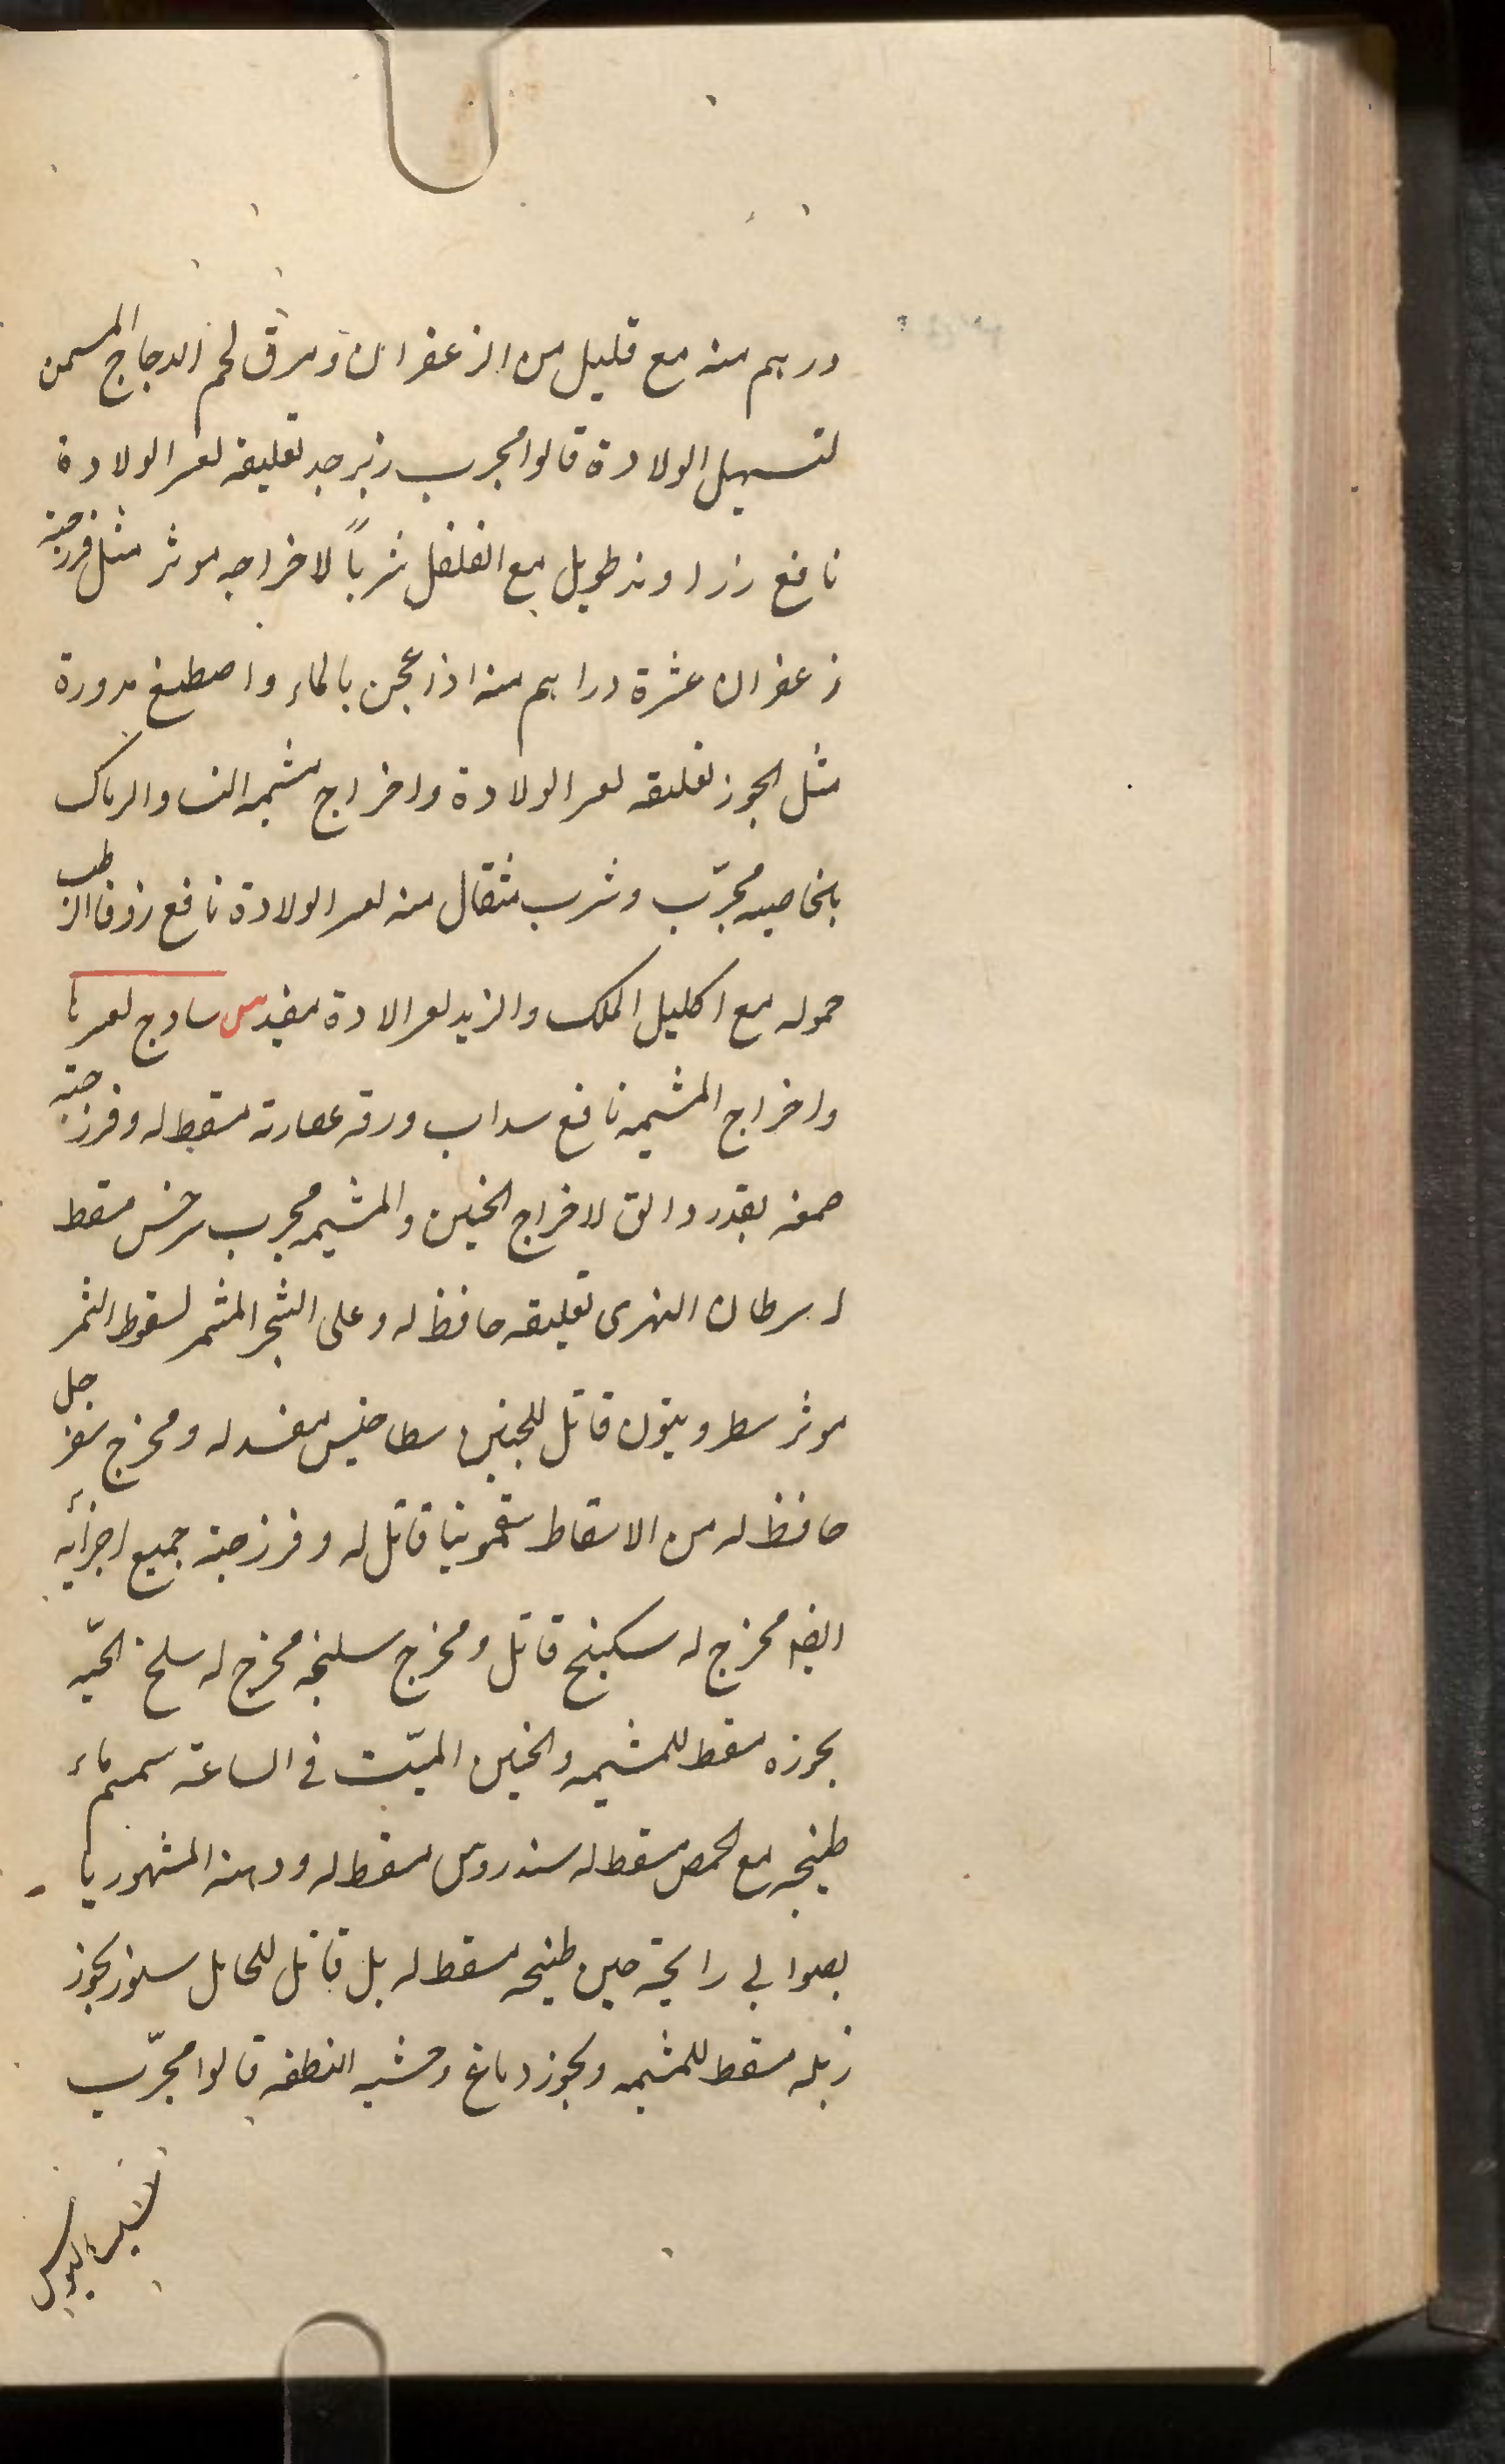 درهم منه مع قليل من الزعفران ومرق لحم الدجاج المسمن
لتسهيل الولادة قالوا مجرب زبرجد تعليقه لعسر الولادة
نافع زراوند طويل مع الفلفل شرباً لاخراجه موثر مثل فرزجة
زعفران عشرة دراهم منه اذا عجن بالماء واصطنع مدورة
مثل الجوز تعليقه لعسر الولادة واخراج مشيمه النسا والرماك
بالخاصيه مجرّب وشرب مثقال منه لعسر الولادة نافع زوفا الرطب
حموله مع اكليل الملك والزبد لعسر الادة مفيد س سادج لعسرها
واخراج المشيمه نافع سداب ورقه عصارته مسقط له وفرزجة
صمغه بقدر دانق لاخراج الجنين والمشيمه مجرب سرخس مسقط
له سرطان النهرى تعليقه حافظ له وعلى الشجر المثمر لسقوط الثمر
موثر سطرونيون قاتل للجنين سطاخيس مفسد له ومخرج سفرجل
حافظ له من الاسقاط سقمونيا قاتل له وفرزجة جميع اجزائه
ايضا مخرج له سكبنج قاتل ومخرج سليخه مخرج له سلخ الحيّه
بخوره مسقط للمشيمه والجنين الميّت فى الساعة سمسم ماء
طبيخه مع الحمص مسقط له سندروس مسقط له ودهنه المشهور با
بصوابى رايحة حين طبخه مسقط له بل قاتل للحامل سنور بخور
زبله مسقط للمشيمه وبخور دماغ وحشيه النطفه قالوا مجرّب